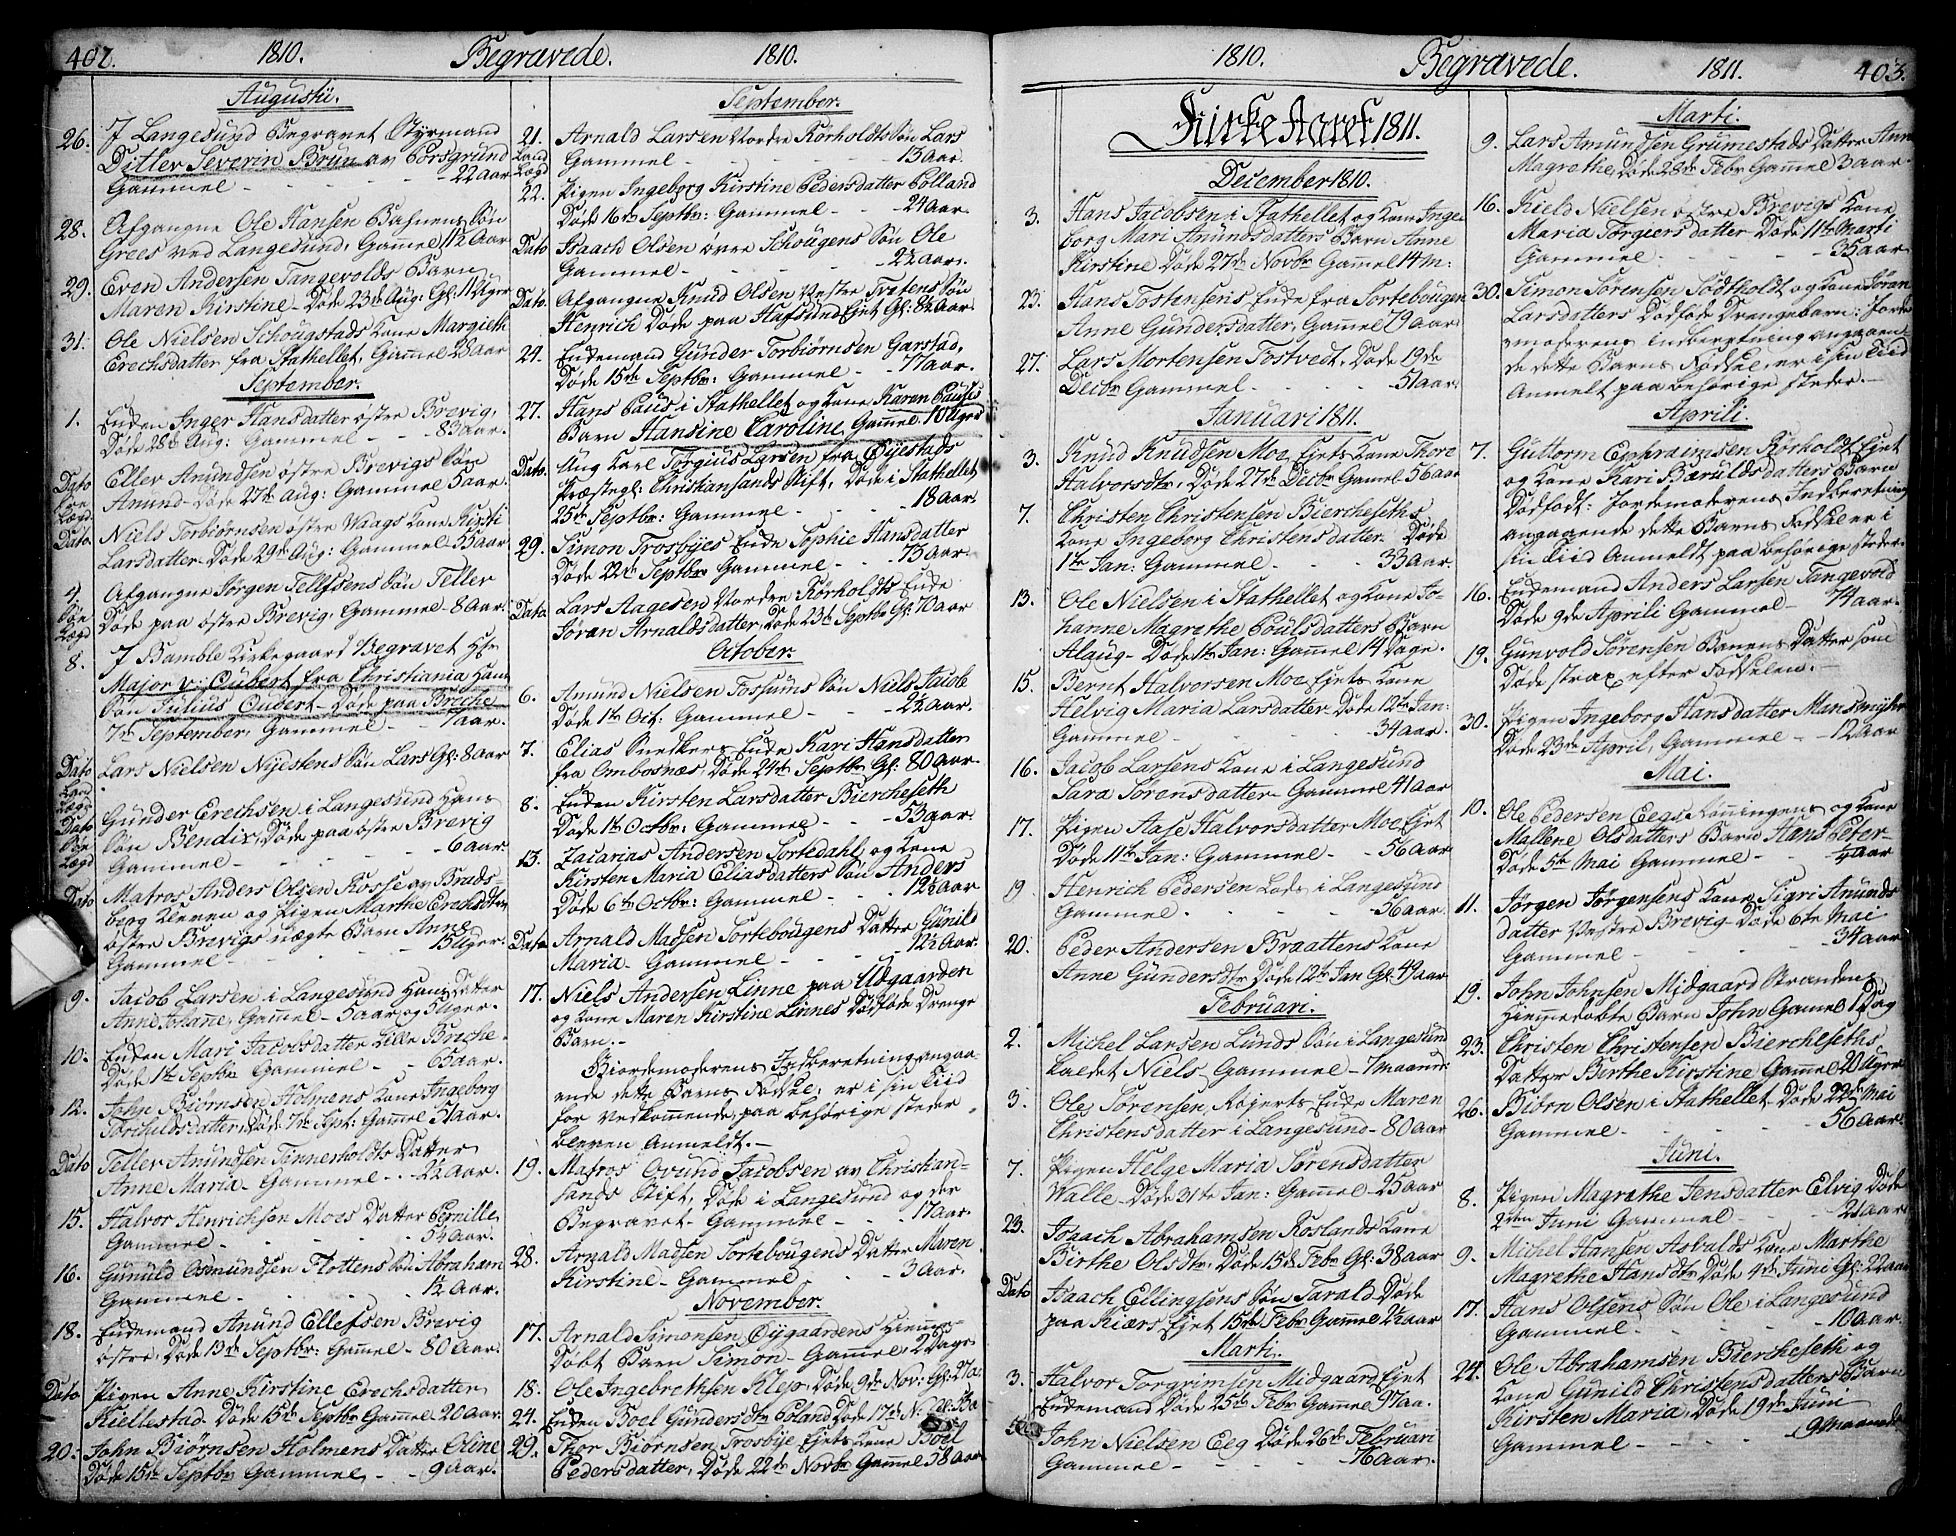 402. 1810. Begravede. 1810.
Augusti.
26. I Langesund Begravet Styrmand
Ditler Severin Brun av Porsgrund
Gammel - - - 22 Aar
28. Afgangne Ole Hansen Bahnens Søn
Grees ved Langesund, Gamel 11½ Aar
29. Even Andersen Tangevolds Barn
Maren Kirstine - Døde 23de Aug: Gl: 11 Uger
31. Ole Nielsen Schougstads Kone Margieth
Erechsdatter fra Stathellet, Gamel 28 Aar
September.
1. Enken Inger Hansdatter østre Brevig,
Døde 28de Aug: Gammel - - 83 Aar.
Dato Eller Amundsen østre Brevigs Søn
Amund - Døde 27de Aug: Gammel 5 aar.
Dato Niels Torbiørnsen østre Waags Kone Kirsti
Larsdatter - Døde 29de Aug: Gammel 55 aar
4. Afgangne Jørgen Tellefsens Søn Teller
Døde paa østre Brevig, Gammel - 8 Aar.
8. I Bamble Kirkegaard Begravet Hr
Major v: Cubert fra Christiania Hans
Søn Julius Cudert - Døde paa Broche
7de September, Gammel - 7 aar.
Dato Lars Nielsen Nystens Søn Lars Gl: 8 aar
Dato Gunder Erechsen i Langesund Hans
Søn Bendix, Døde paa østre Brevig
Gammel - - - 6 aar
Dato Matros Anders Olsen Rosse av Brads-
berg Kleven og Pigen Marthe Erechsdttr
østre Brevigs uægte Barn Anne
Gammel - - - 15 Uger.
9. Jacob Larsen i Langesund Hans Datter
Anne Johane, Gamel - 5 aar og 3 Uger.
10. Enken Mari Jacobsdatter Lille Broche
Døde 1te Septbr Gammel - - 65 aar.
12. John Biørnsen Holmens Kone Ingeborg
Torchildsdatter, Døde 7de Sept: Gamel 51 aar.
Dato Teller Amundsen Tinnerholdts Datter
Anne Maria - Gammel - - 2½ aar.
15. Halvor Henrichsen Moes Datter Pernille,
Gammel - - - 5¼ aar.
16. Gunuld Osmundsen Flottens Søn Abraham
Gammel - - - 1½ Aar.
18. Enkemand Anund Ellefsen Brevig
østre, Døde 13de Septbr: Gamel - 80 Aar.
Dato Pigen Anne Kirstine Erechsdatter
Kiellestad - Døde 15de Septbr Gamel 20 Aar.
20. John Biørnsen Holmens Datter Eline
Døde 15de Septbr Gammel - - 9 Aar.
September.
21. Arnald Larsen Vordre Rørholdts Søn Lars
Gammel - - - 13 Aar.
22. Pigen Ingeborg Kirstine Pedersdatter Rolland
Døde 16de Septbr: Gammel - - 24 Aar.
Dato Isaach Olsen øvre Schougens Søn Ole
Gammel - - - 2½ Aar.
Dato Afgangne Knud Olsen Vestre Tvetens Søn
Henrich Døde paa Hafsund Eiet Gl: 8½ Aar
24. Enkemand Gunder Torbiørnsen Garstad,
Døde 15de Septbr: Gammel - - 77 Aar.
27. Hans Paus i Stathellet og Kone Karen Pauses
Barn Hansine Caroline, Gamel 10 Uger
Dato. Ung Karl Torgius Larsen fra Øyestads
Præstegl: Christiansands Stift, Døde i Stathellet
25de Septbr: Gammel - - 18 Aar.
29. Simon Trosbyes Enke Sophie Hansdatter
Døde 22de Septbr Gammel - - 73 Aar.
Dato. Lars Aagesen Vordre Rørholdts Enke
Jøran Arnaldsdatter, Døde 23de Septbr Gl: 70 Aar
October.
6. Amund Nielsen Fossums Søn Niels Jacob
Døde 1te Oct: Gammel - - 2½ Aar.
7. Elias Snedkers Enke Kari Hansdatter
fra Ombosnæs Døde 24de Septbr Gl: 80 Aar.
8. Enken Kirsten Larsdatter Biercheseth
Døde 1te Octbr: Gammel - - 53 aar.
13. Zacarias Andersen Sortedahl, og Kone
Kirsten Maria Eliasdatters Søn Anders
Døde 6te Octbr: Gammel - - 12½ Aar
Dato Arnald Madsen Sortebougens Datter Gunild
Maria - Gammel - - 12½ Aar.
17. Niels Andersen Linne paa Udgaarden
og Kone Maren Kirstine Linnes Dødføde Drenge
Barn. -
Giordemoderens Indberetning angaa-
ende dette Barns Fødsel, er i sin Tiid
for vedkommende paa behørige steder
bleven anmeldt. -
19. Matros Ovund Jacobsen av Christian-
sands Stift, Døde i Langesund og der
Begravet - Gammel - - 17 aar.
28. Arnald Madsen Sortebougens Datter Maren
Kirstine - Gammel - - 3 Aar.
November.
17. Arnald Simonsen Øygaardens Hieme-
Døbt Barn Simon - Gammel, 2 Dage
18. Ole Ingebrethsen Klep, Døde 9de Nov: Gl: 27 aa
24. Enken Boel Gundersdtr Eoland Døde 17de N:
29. Thor Biørnsen Trosbye Eiets Kone Boel
Pedersdatter, Døde 22de Novbr Gamel 58 Aar
1810. Begravede. 1811. 403.
Kirke Aaret 1811.
December 1810.
3. Hans Jacobsen i Stathellet og Kone Inge-
borg Mari Anundsdatters Barn Anne
Kirstine Døde 27de Novbr Gamel 14 m:
23. Hans Tostensens Enke fra Sortebougen
Anne Gundersdatter, Gamel 79 Aar
27. Lars Mortensen Tostvedt, Døde 19de
Decbr Gammel - - - 51 Aar.
Januari 1811.
3. Knud Knudsen Moe Eiets Kone Thore
Halvorsdtr, Døde 27de Decbr Gamel 56 Aar
7. Christen Christensen Biercheseths
Kone Ingeborg Christensdatter - Døde
1te Jan: Gammel - - 33 Aar.
13. Ole Nielsen i Stathellet og Kone Jo-
hanne Magrethe Poulsdatters Barn
Alaug - Døde 1te Jan: Gamel 14 Dage.
15. Bernt Halvorsen Moe Eiets Kone
Helvig Maria Larsdatter Døde 12te Jan:
Gammel - - - 34 Aar.
16. Jacob Larsens Kone i Langesund
Sara Sørensdatter Gammel 41 Aar
17. Pigen Aase Halvorsdatter Moe Eiet
Døde 11te Jan: Gammel - - 56 Aar
19 Henrich Pedersen Lods i Langesund
Gammel - - - 56 Aar.
20. Peder Andersen Braattens Kone
Anne Gundersdtr Døde 12te Jan Gl: 49 Aar
Februari.
2. Michel Larsen Lunds Søn i Langesund
kaldet Niels, Gammel - 7 maaneder
3. Ole Sørensen, Rojerts Enke Maren
Christensdatter i Langesund - 80 Aar
7. Pigen Helge Maria Sørensdatter
Walle - Døde 31te Jan: Gamel - 23 Aar
23. Isaach Abrahamsen Roslands Kone
Birthe Olsdtr, Døde 15de Febr Gl: 38 Aar
Dato Isaach Ellingsens Søn Tarald Døde
paa Kiærs Eiet 15de Febr Gamel 2½ Aar
Marti.
3. Halvor Torgrimsen Midgaard Eiet
Enkemand Døde 25de Febr Gamel 97 Aa.
John Nielsen Eeg Døde 26de Februari
Gammel - - - 76 Aar.
Marti.
9. Lars Amundsen Grumestads Datter Anne
Magrethe, Døde 28de Febr Gamel 3 aar.
16. Kield Nielsen østre Brevigs Kone
Maria Torgiersdatter Døde 11te Marti
Gammel - - - 35 Aar
30. Simon Sørensen Sødtholdt og Kone Jøran
Larsdatters Dødføde Drengebarn: Jorde
moderens Indberetning angaaen
de dette Barns Fødsel, er i sin Tiid
Anmelt paa behørige steder. -
Aprili.
7. Guttorm Ephraimsen Rørholdt Eiet
og Kone Kari Baruldsdatters Barn
Dødfødt: Jordemoderens Indberetning
angaaende dette Barns Fødsel er i
sin Tiid Anmeldt paa behørige steder.
16. Enkemand Anders Larsen Tangevold
Døde 9de Aprili Gammel - 74 Aar.
19. Gunvold Sørensen Banens Datter som
Døde strax efter Fødselen. -
30. Pigen Ingeborg Hansdatter Mansmyhr
Døde 23de April, Gammel - - 12 Aar
Mai.
10. Ole Pedersen Eegs Køningens og Kone
Mallene Olsdatters Barn Hans Peter -
Døde 5te Mai Gammel - - ¼ Aar
11. Jørgen Jørgensens Kone Sigri Anunds
datter Vestre Brevig - Døde 6te Mai
Gammel - - - 34 Aar
19. John Johnsen Midgaard Strandens
Hiemedøbte Barn John Gamel 1 Dag
23. Christen Christensen Biercheseths
Datter Berthe Kirstine Gamel 20 Uger
26. Biørn Olsen i Stathellet Døde 22de Mai
Gammel - - - 56 Aar.
Juni.
8. Pigen Magrethe Jensdatter Elvig Døde
2den Juni Gammel - - 21 Aar.
9. Michel Hansen Asvalds Kone Marthe
Magrethe Hansdtr Døde 4de Juni Gl: 22 aar
17. Hans Olsens Søn Ole i Langesund
Gammel - - - 10 Aar
24. Ole Abrahamsen Biercheseth og
Kone Gunild Christensdatters Barn
Kirsten Maria, Døde 19de Juni
Gammel - - - 9 maaneder